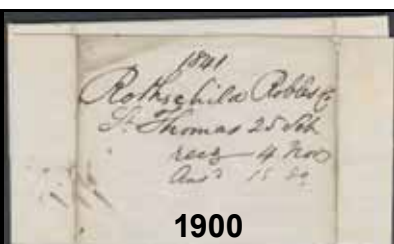 1841
Rothschild Robles Co
St Thomas 25 Feb
recd 4 Nov
Ansd 15
1900